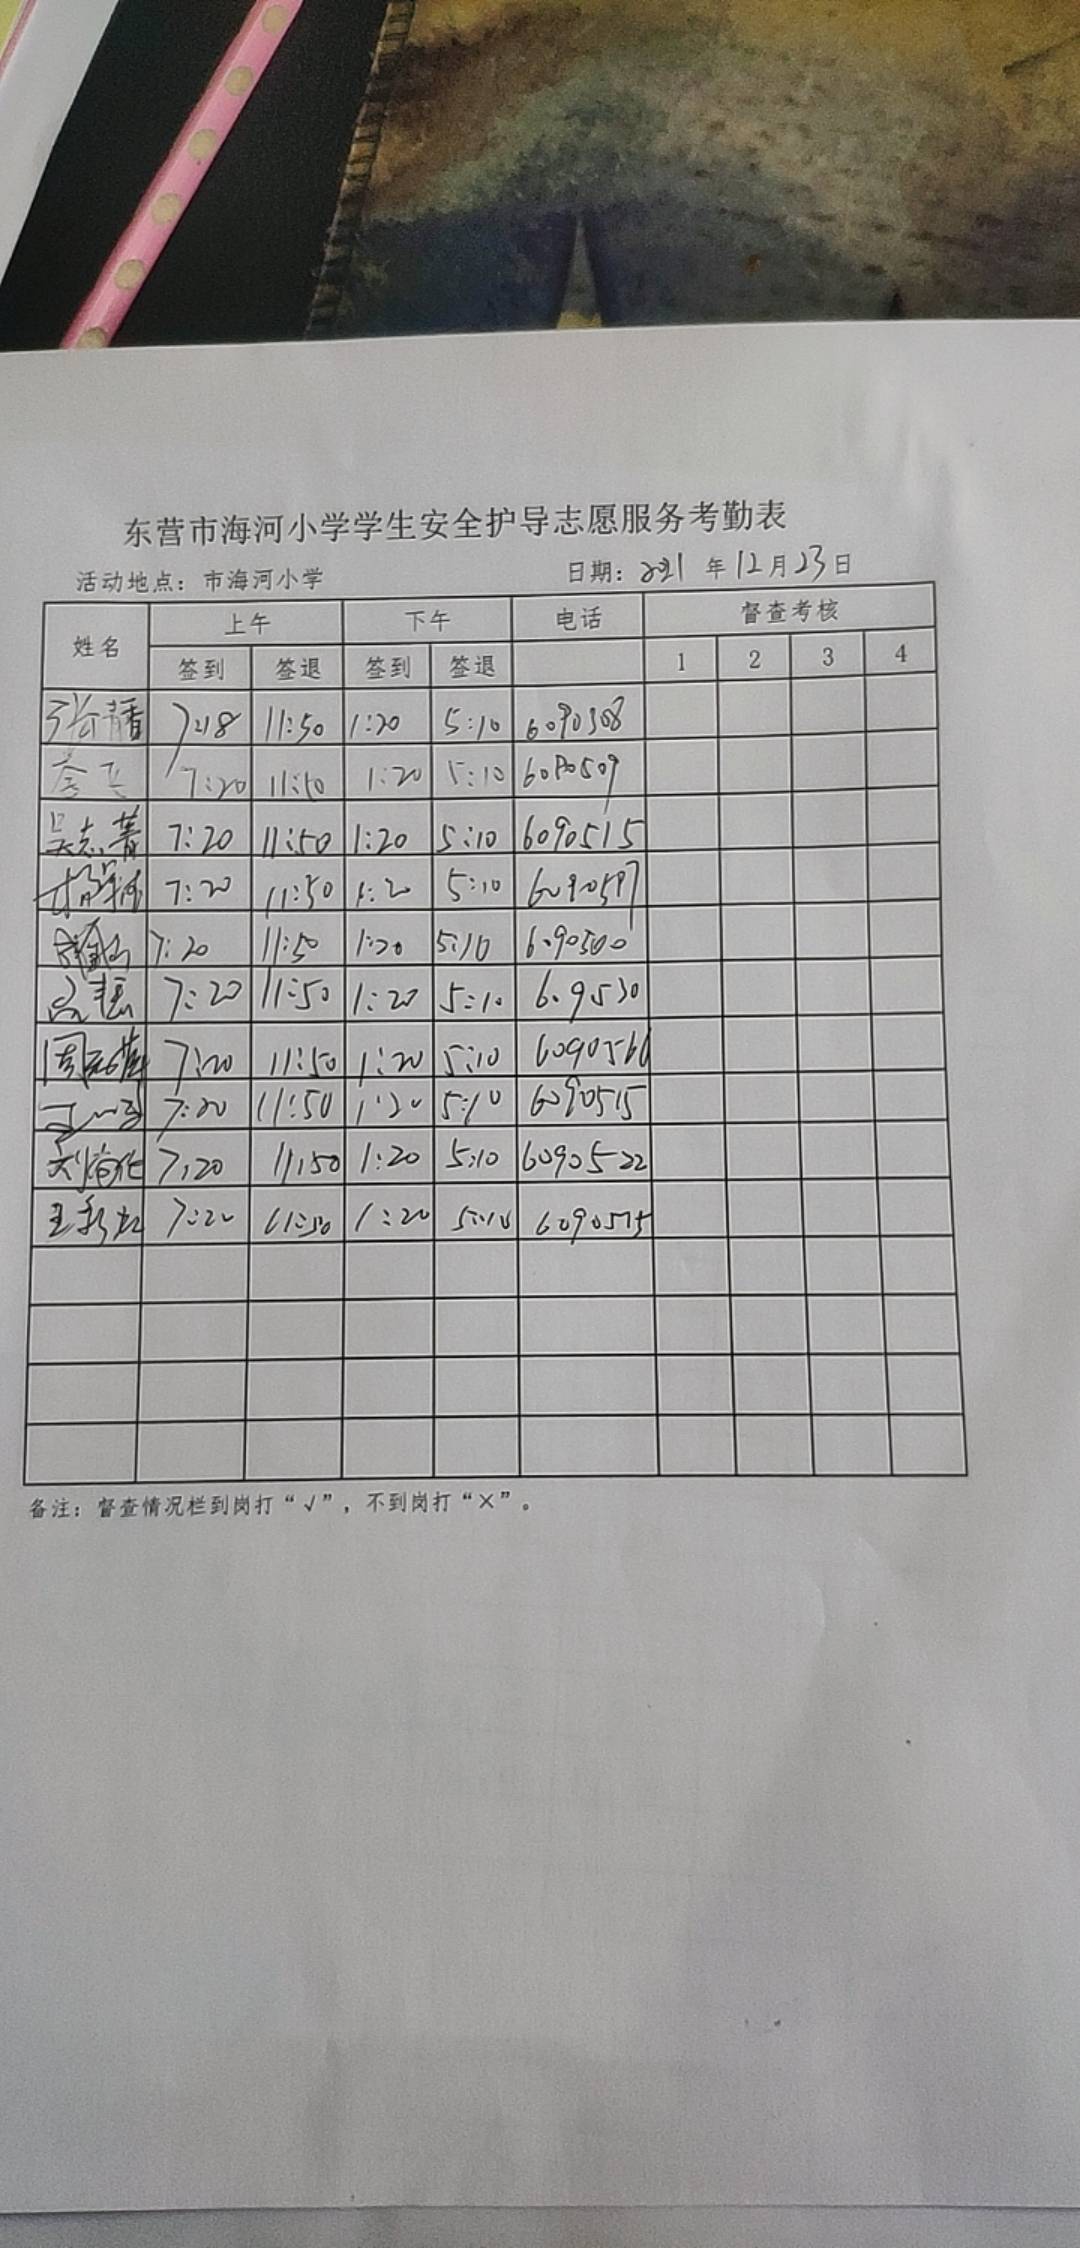 东营市海河小学学生安全护导志愿服务考勤表
活动地点：市海河小学 日期：2021 年 12 月 23 日
姓名 上午 下午 电话 督查考核
签到 签退 签到 签退 1 2 3 4
张青香 7:18 11:50 1:20 5:10 6090508
7:20 11:50 1:20 5:10 6090509
吴志菁 7:20 11:50 1:20 5:10 6090515
7:20 11:50 1:20 5:10 6090597
7:20 11:50 1:20 5:10 6090500
7:20 11:50 1:20 5:10 609530
7:20 11:50 1:20 5:10 6090566
7:20 11:50 1:20 5:10 6090515
7:20 11:50 1:20 5:10 6090522
7:20 11:50 1:20 5:10 6090575
备注：督查情况栏到岗打“√”，不到岗打“×”。